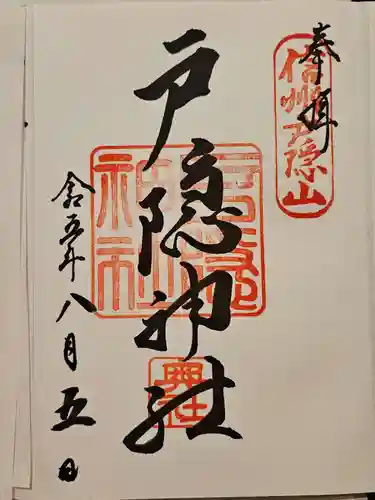 奉拝
信州戸隠山
戸隠神社
奥社
令五年八月五日